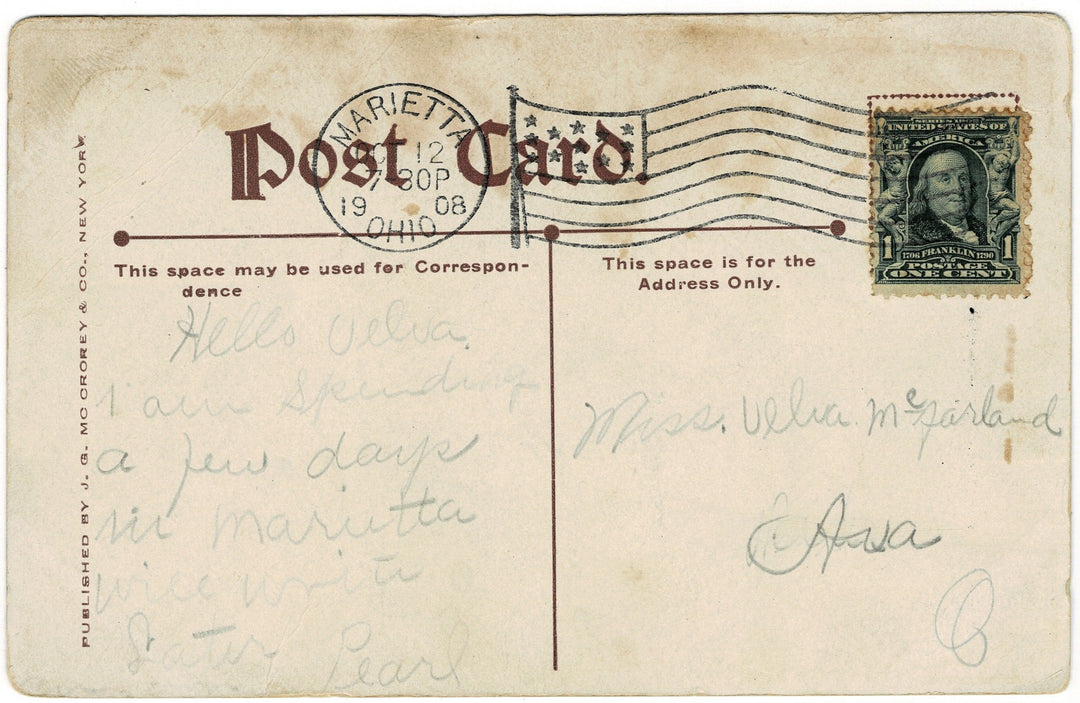 Post Card.
MARIETTA
OCT 12
7 30P
1908
OHIO
SERIES 1902
UNITED STATES OF
AMERICA
1 1
1706 FRANKLIN 1790
POSTAGE
ONE CENT
This space may be used for Correspon-
dence
This space is for the
Address Only.
Hello Velva.
I am spending
a few days
in Marietta
will write
Later Pearl
Miss. Velva McFarland
Ava
O
PUBLISHED BY J. G. MC CROREY & CO., NEW YORK